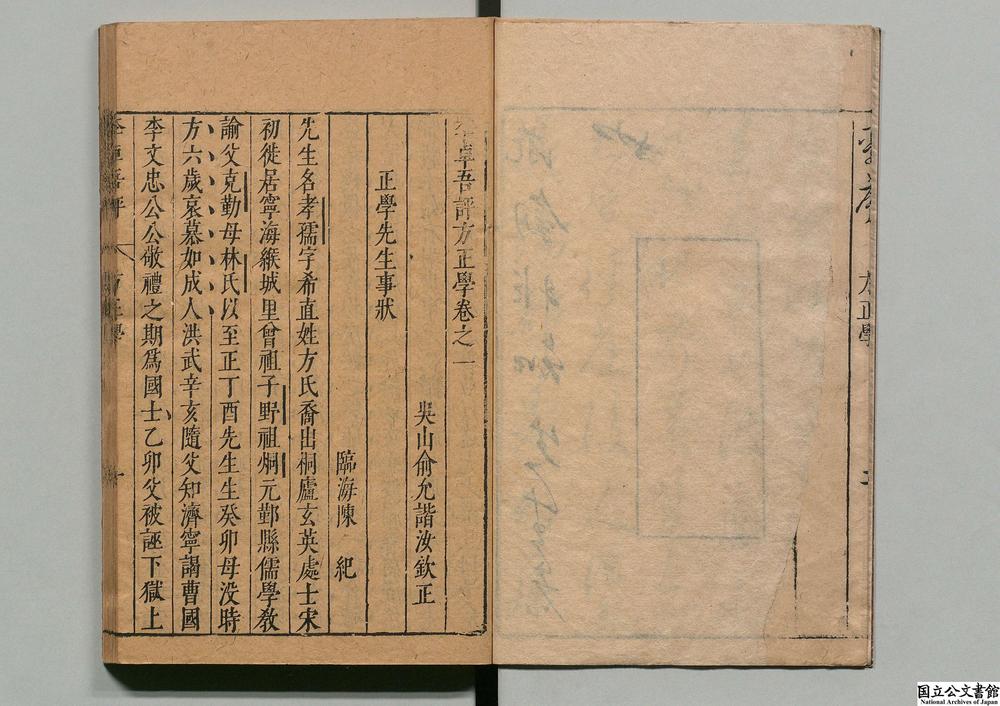 方正學
李卓吾評方正學卷之一
吳山俞允諧汝欽正
正學先生事狀
臨海陳 紀
先生名孝孺字希直姓方氏喬出桐廬玄英處士宋
初徙居寧海緱城里曾祖子野祖炯元鄞縣儒學敎
諭父克勤母林氏以至正丁酉先生生癸卯母没時
方六歲哀慕如成人洪武辛亥隨父知濟寧謁曹國
李文忠公公敬禮之期爲國士乙卯父被誣下獄上
李卓吾評 方正學 一
国立公文書館
National Archives of Japan